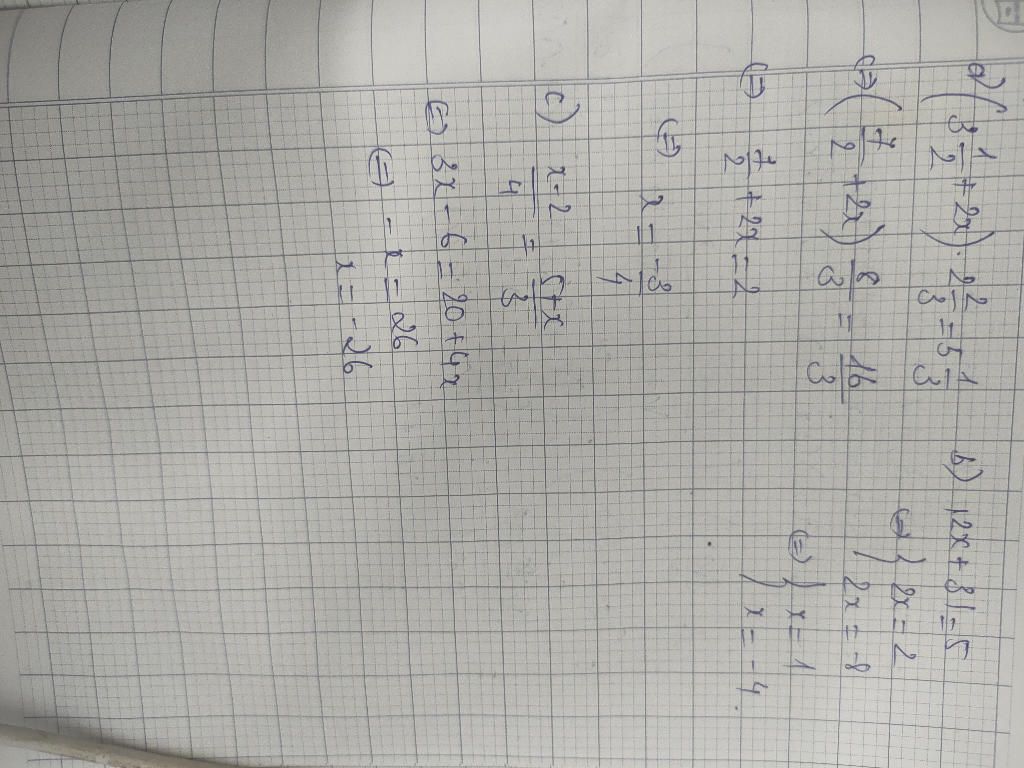 a) (3 1/2 + 2x) . 2 2/3 = 5 1/3
(=) (7/2 + 2x) 8/3 = 16/3
(=) 7/2 + 2x = 2
(=) x = -3/4
b) |2x + 3| = 5
(=) { 2x = 2
2x = -8
(=) { x = 1
x = -4
c) x-2/4 = 5+x/3
(=) 3x - 6 = 20 + 4x
(=) - x = 26
x = -26